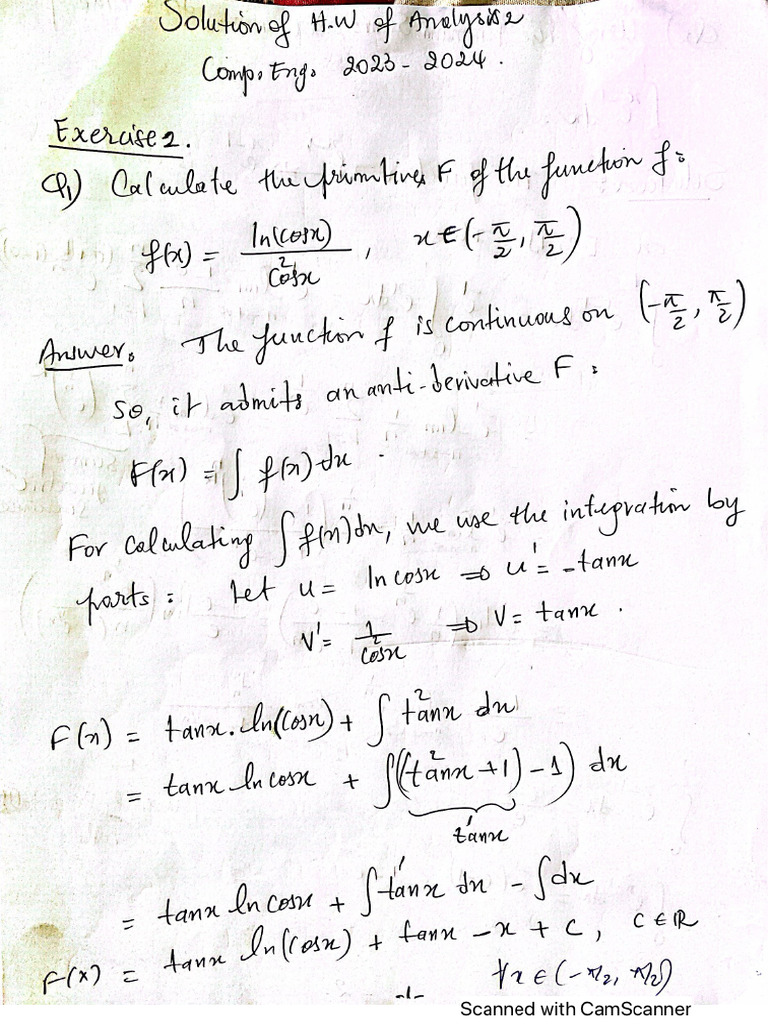 Solution of H.W of Analysis 2
Comp. Eng. 2023 - 2024.
Exercise 2.
Q1) Calculate the primitives F of the function f:
f(x) = ln(cosx) / cos²x , x ∈ (-π/2, π/2)
Answer. The function f is continuous on (-π/2, π/2)
so, it admits an anti-derivative F :
F(x) = ∫ f(x) dx .
For calculating ∫ f(x) dx, we use the integration by
parts : Let u = ln cosx ⇒ u' = -tanx
V' = 1/cos²x ⇒ V = tanx .
F(x) = tanx . ln(cosx) + ∫ tan²x dx
= tanx ln cosx + ∫ ((tan²x + 1) - 1) dx
tan'x
= tanx ln cosx + ∫ tan'x dx - ∫ dx
F(x) = tanx ln(cosx) + tanx - x + c, c ∈ ℝ
∀x ∈ (-π/2, π/2)
-1-
Scanned with CamScanner